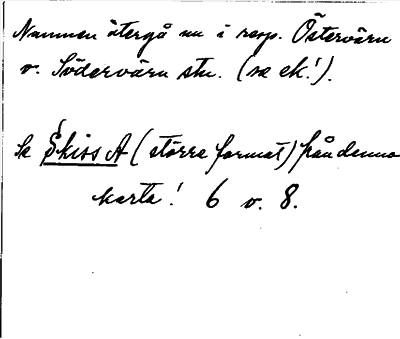 Namnen återgå nu i resp. Östervärn
v. Södervärn stn. (se ek!).
Se Skiss A (större format) från denna
karta! 6 v. 8.